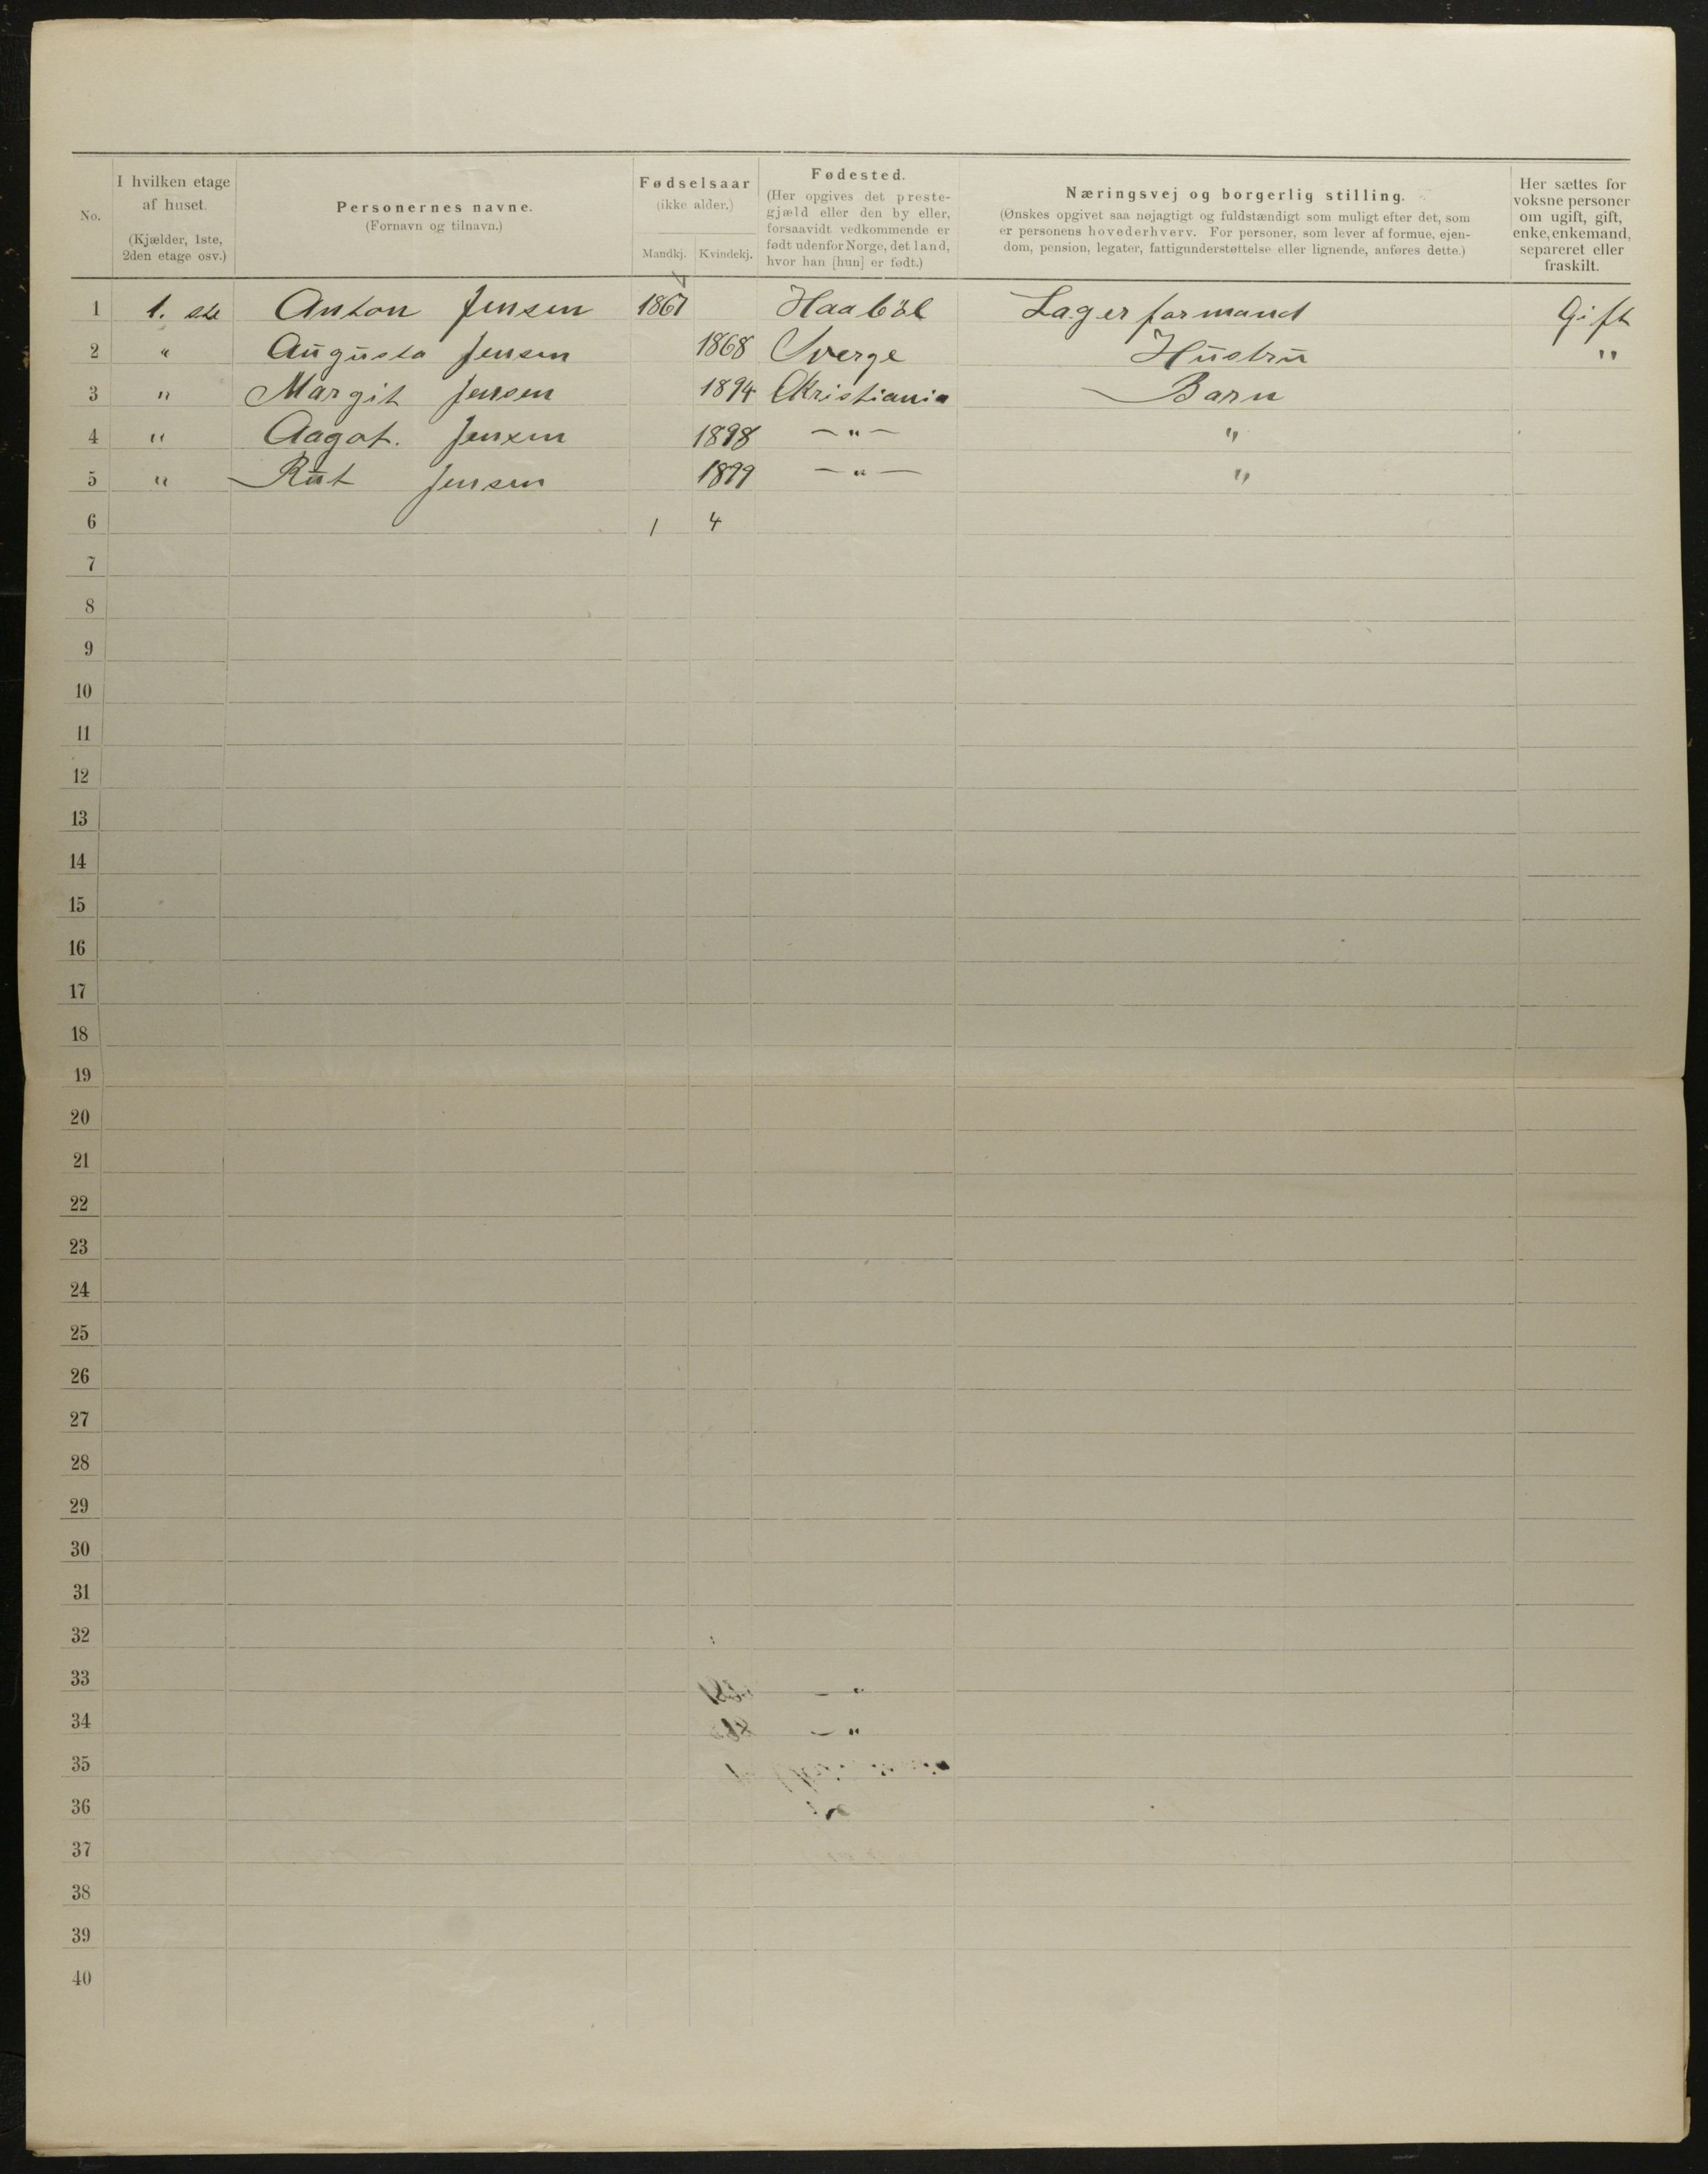 No.
I hvilken etage af huset.
(Kjælder, 1ste, 2den etage osv.)
Personernes navne.
(Fornavn og tilnavn.)
Fødselsaar
(ikke alder.)
Mandkj. Kvindekj.
Fødested.
(Her opgives det preste-
gjæld eller den by eller,
forsaavidt vedkommende er
født udenfor Norge, det land,
hvor han [hun] er født.)
Næringsvej og borgerlig stilling.
(Ønskes opgivet saa nøjagtigt og fuldstændigt som muligt efter det, som
er personens hovederhverv. For personer, som lever af formue, ejen-
dom, pension, legater, fattigunderstøttelse eller lignende, anføres dette.)
Her sættes for
voksne personer
om ugift, gift,
enke, enkemand,
separeret eller
fraskilt.
1 1. ste Anton Jensen 1867 Haaböl Lagerformand Gift
2 " Augusta Jensen 1868 Sverge Hustru "
3 " Margit Jensen 1894 Kristiania Barn
4 " Aagot. Jensen 1898 — " — "
5 " Rut Jensen 1899 — " — "
6 1 4
7
8
9
10
11
12
13
14
15
16
17
18
19
20
21
22
23
24
25
26
27
28
29
30
31
32
33
34
35
36
37
38
39
40